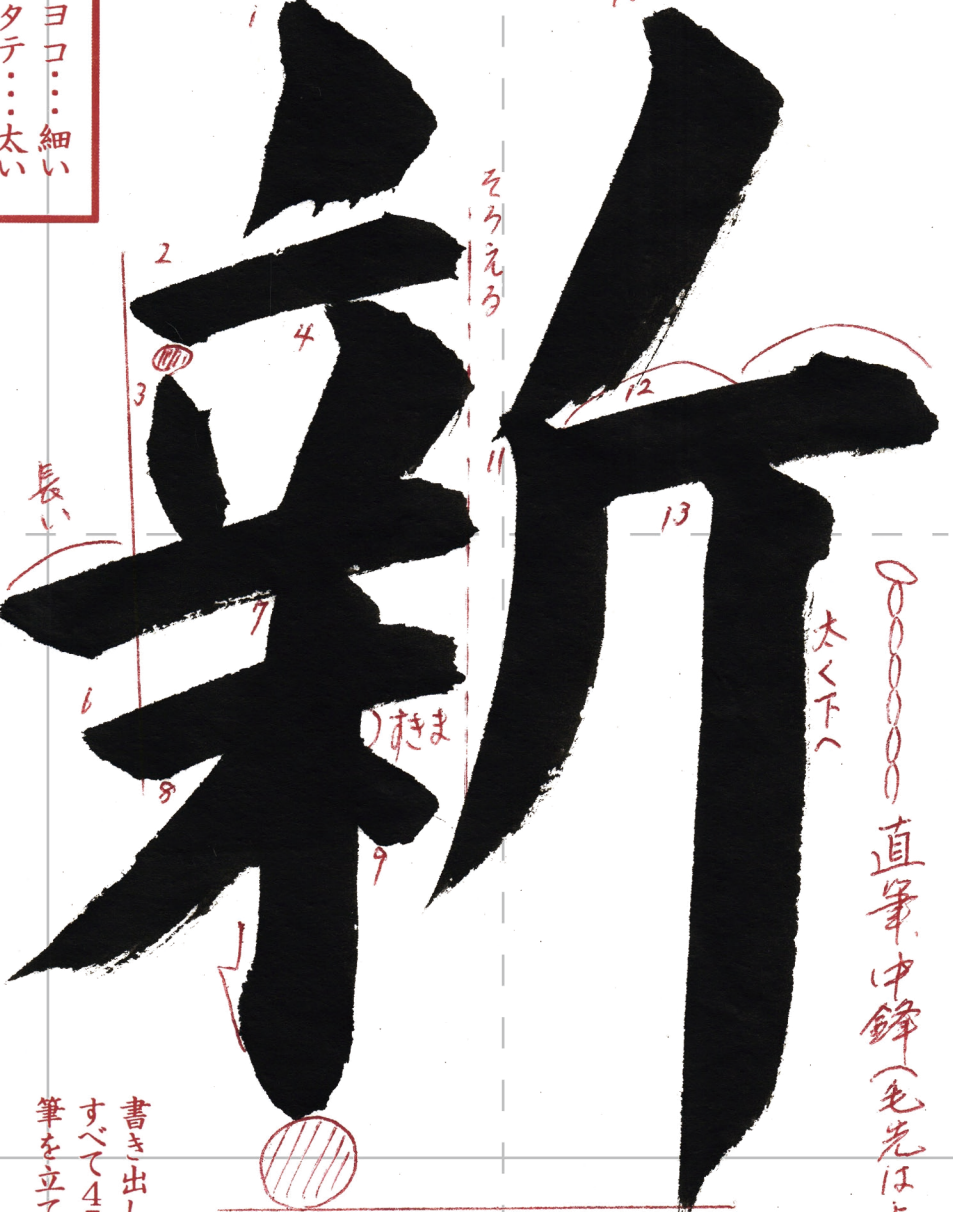 新
ヨコ・・・細い
タテ・・・太い
1
2
3
4
そろえる
長い
7
6
8
9
すきま
11
12
13
太く下へ
直筆中鋒(毛先は
書き出し
すべて4
筆を立て